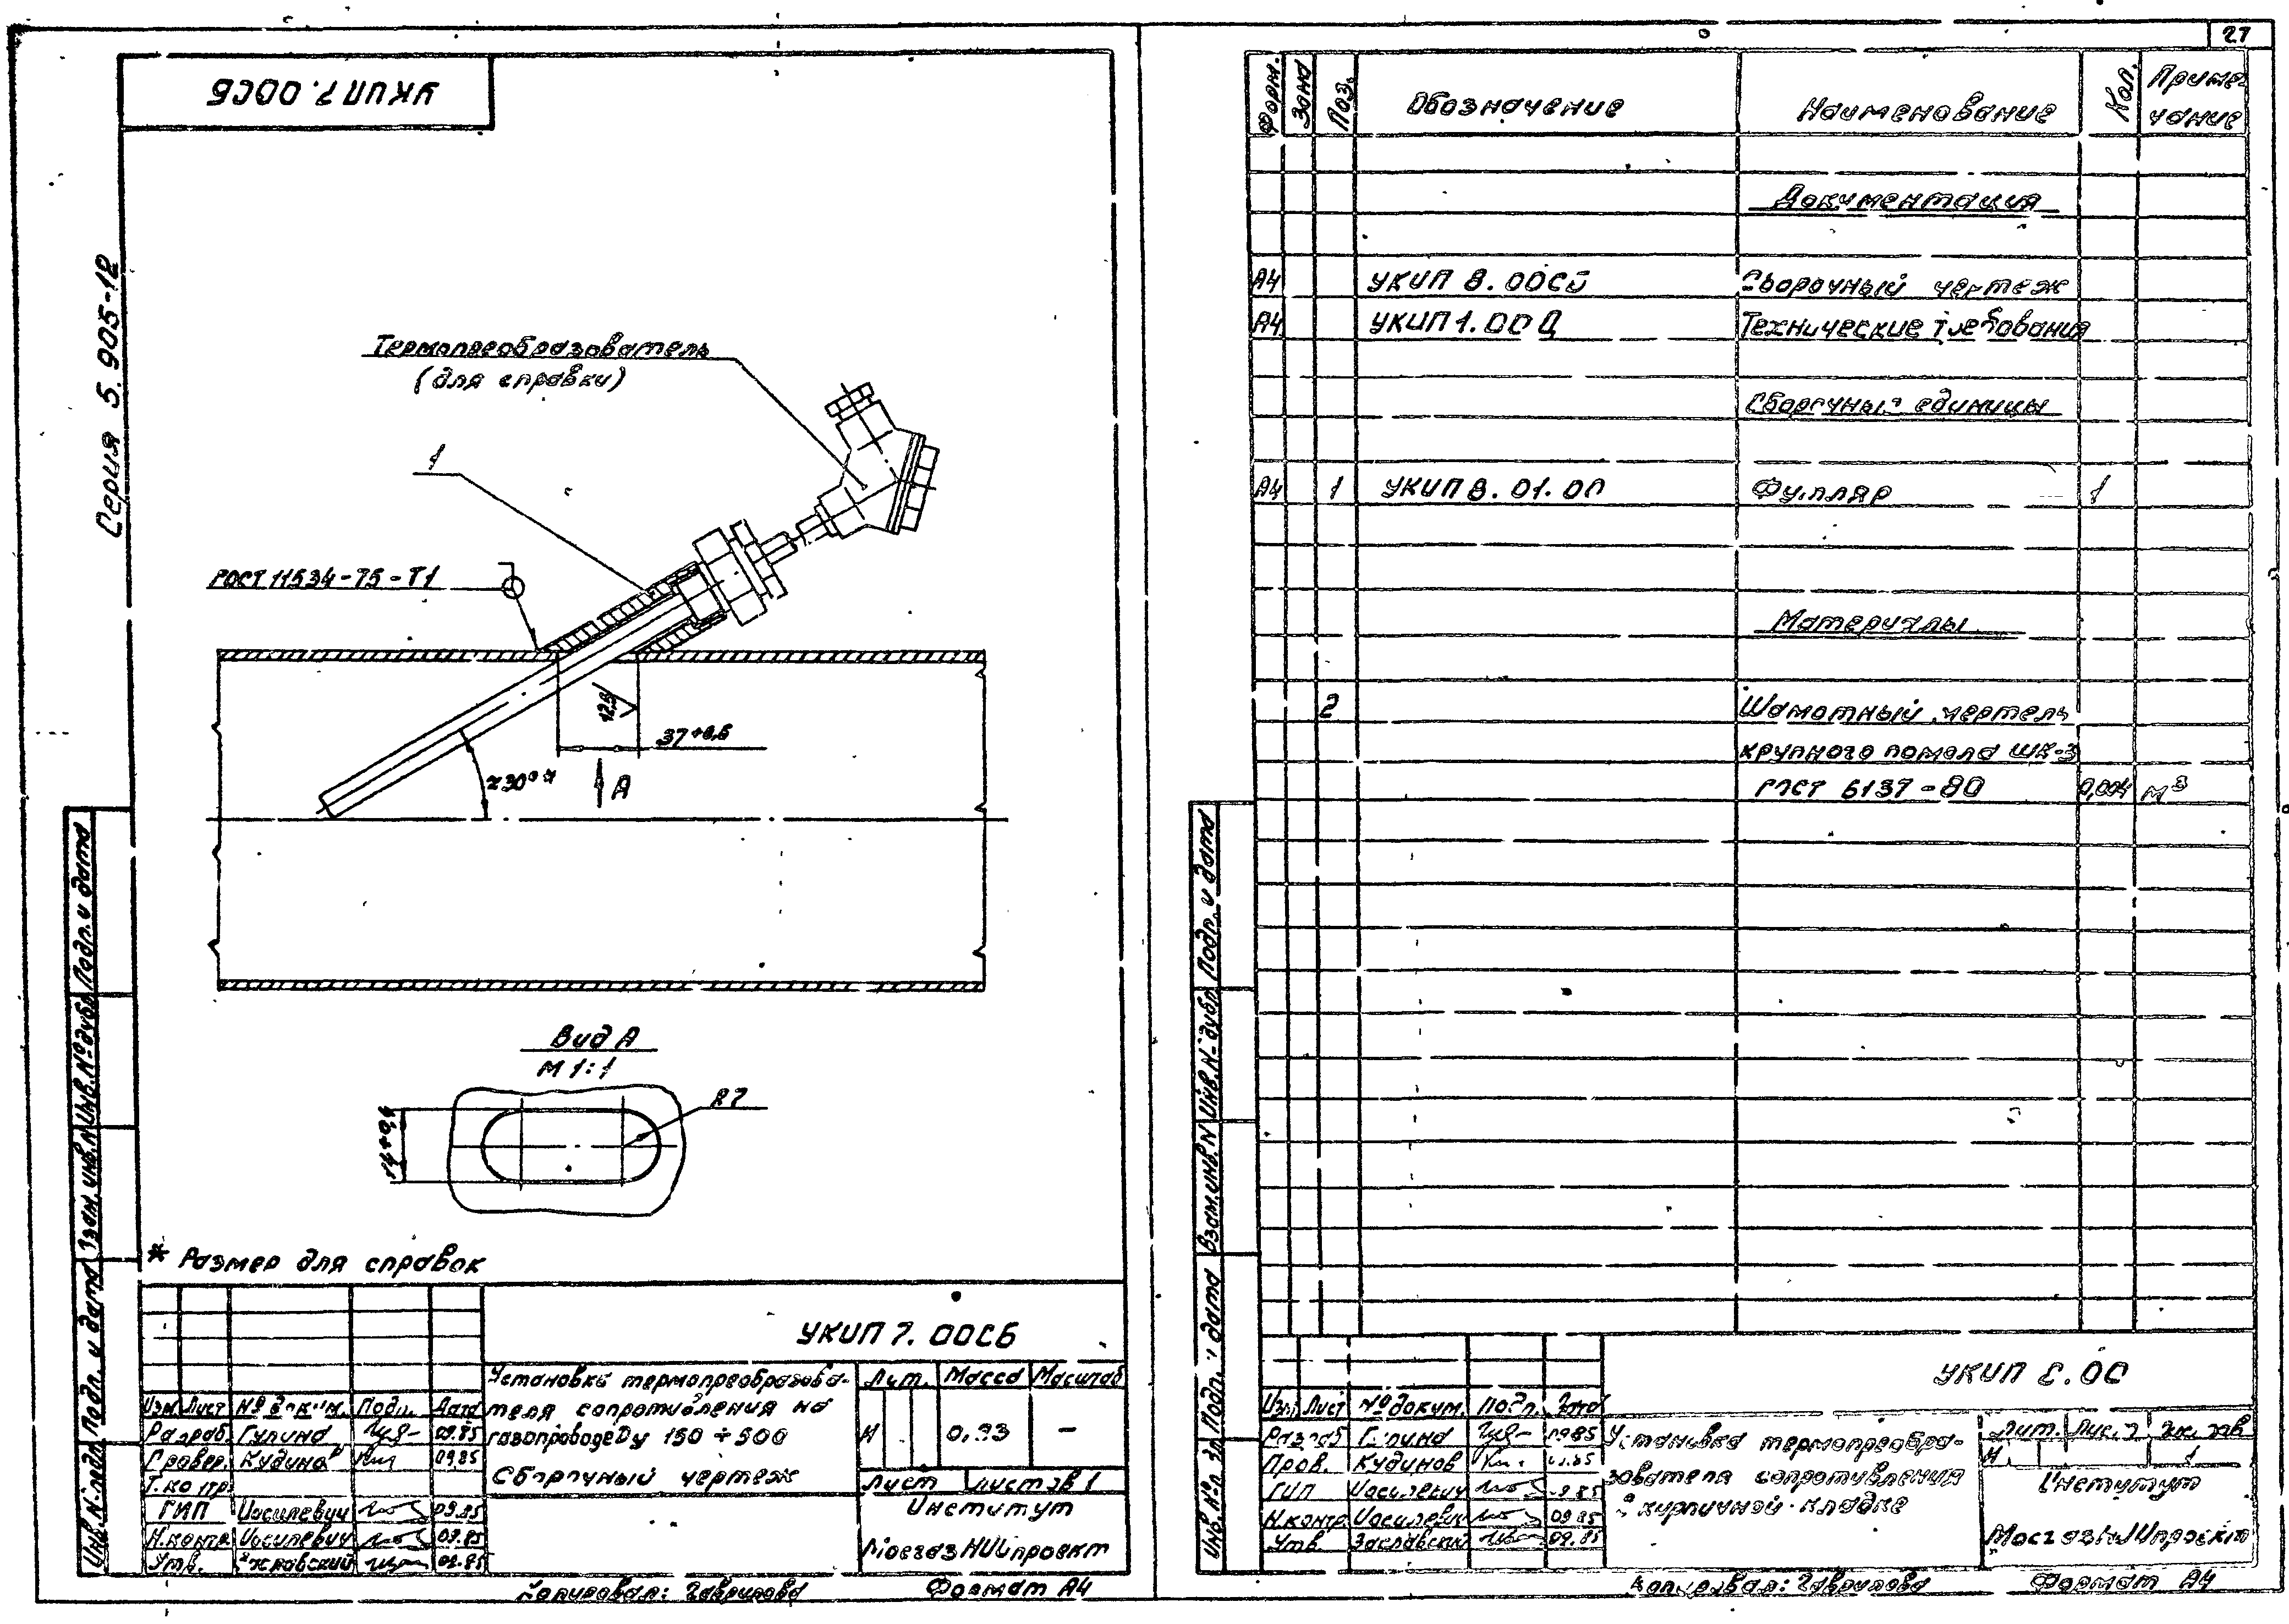 27
УКИП7.00СБ
Серия 5.905-12
Термопреобразователь
(для справки)
1
ГОСТ 11534-75-Т1
12,5
37+0,6
30°*
А
Вид А
М 1:1
R7
14+0,4
* Размер для справок
УКИП 7.00СБ
Установка термопреобразова-
теля сопротивления на
газопроводе Dу 150÷500
Сборочный чертеж
Лит. Масса Масштаб
И 0,93 —
Лист Листов 1
Институт
МосгазНИИпроект
Изм Лист № докум. Подп. Дата
Разраб. Гулина 09.85
Провер. Кудинов 09.85
Т.контр.
ГИП Иосилевич 09.85
Н.контр. Иосилевич 09.85
Утв. Заславский 09.85
Копировал: Гаврилова Формат А4
Инв.№подл. Подп. и дата Взам.инв.№ Инв.№дубл. Подп. и дата
Форм. Зона Поз. Обозначение Наименование Кол. Приме-
чание
Документация
А4 УКИП 8.00СБ Сборочный чертеж
А4 УКИП1.00Д Технические требования
Сборочные единицы
А4 1 УКИП8.01.00 Футляр 1
Материалы
2 Шамотный мертель
крупного помола ШК-3
ГОСТ 6137-80 0,004 м³
УКИП 8.00
Изм Лист № докум. Подп. Дата
Разраб Гулина 09.85
Пров. Кудинов 09.85
ГИП Иосилевич 09.85
Н.контр Иосилевич 09.85
Утв. Заславский 09.85
Установка термопреобра-
зователя сопротивления
в кирпичной кладке
Лит. Лист Листов
И 1
Институт
МосгазНИИпроект
Копировал: Гаврилова Формат А4
Инв.№подл Подп. и дата Взам.инв.№ Инв.№дубл Подп. и дата